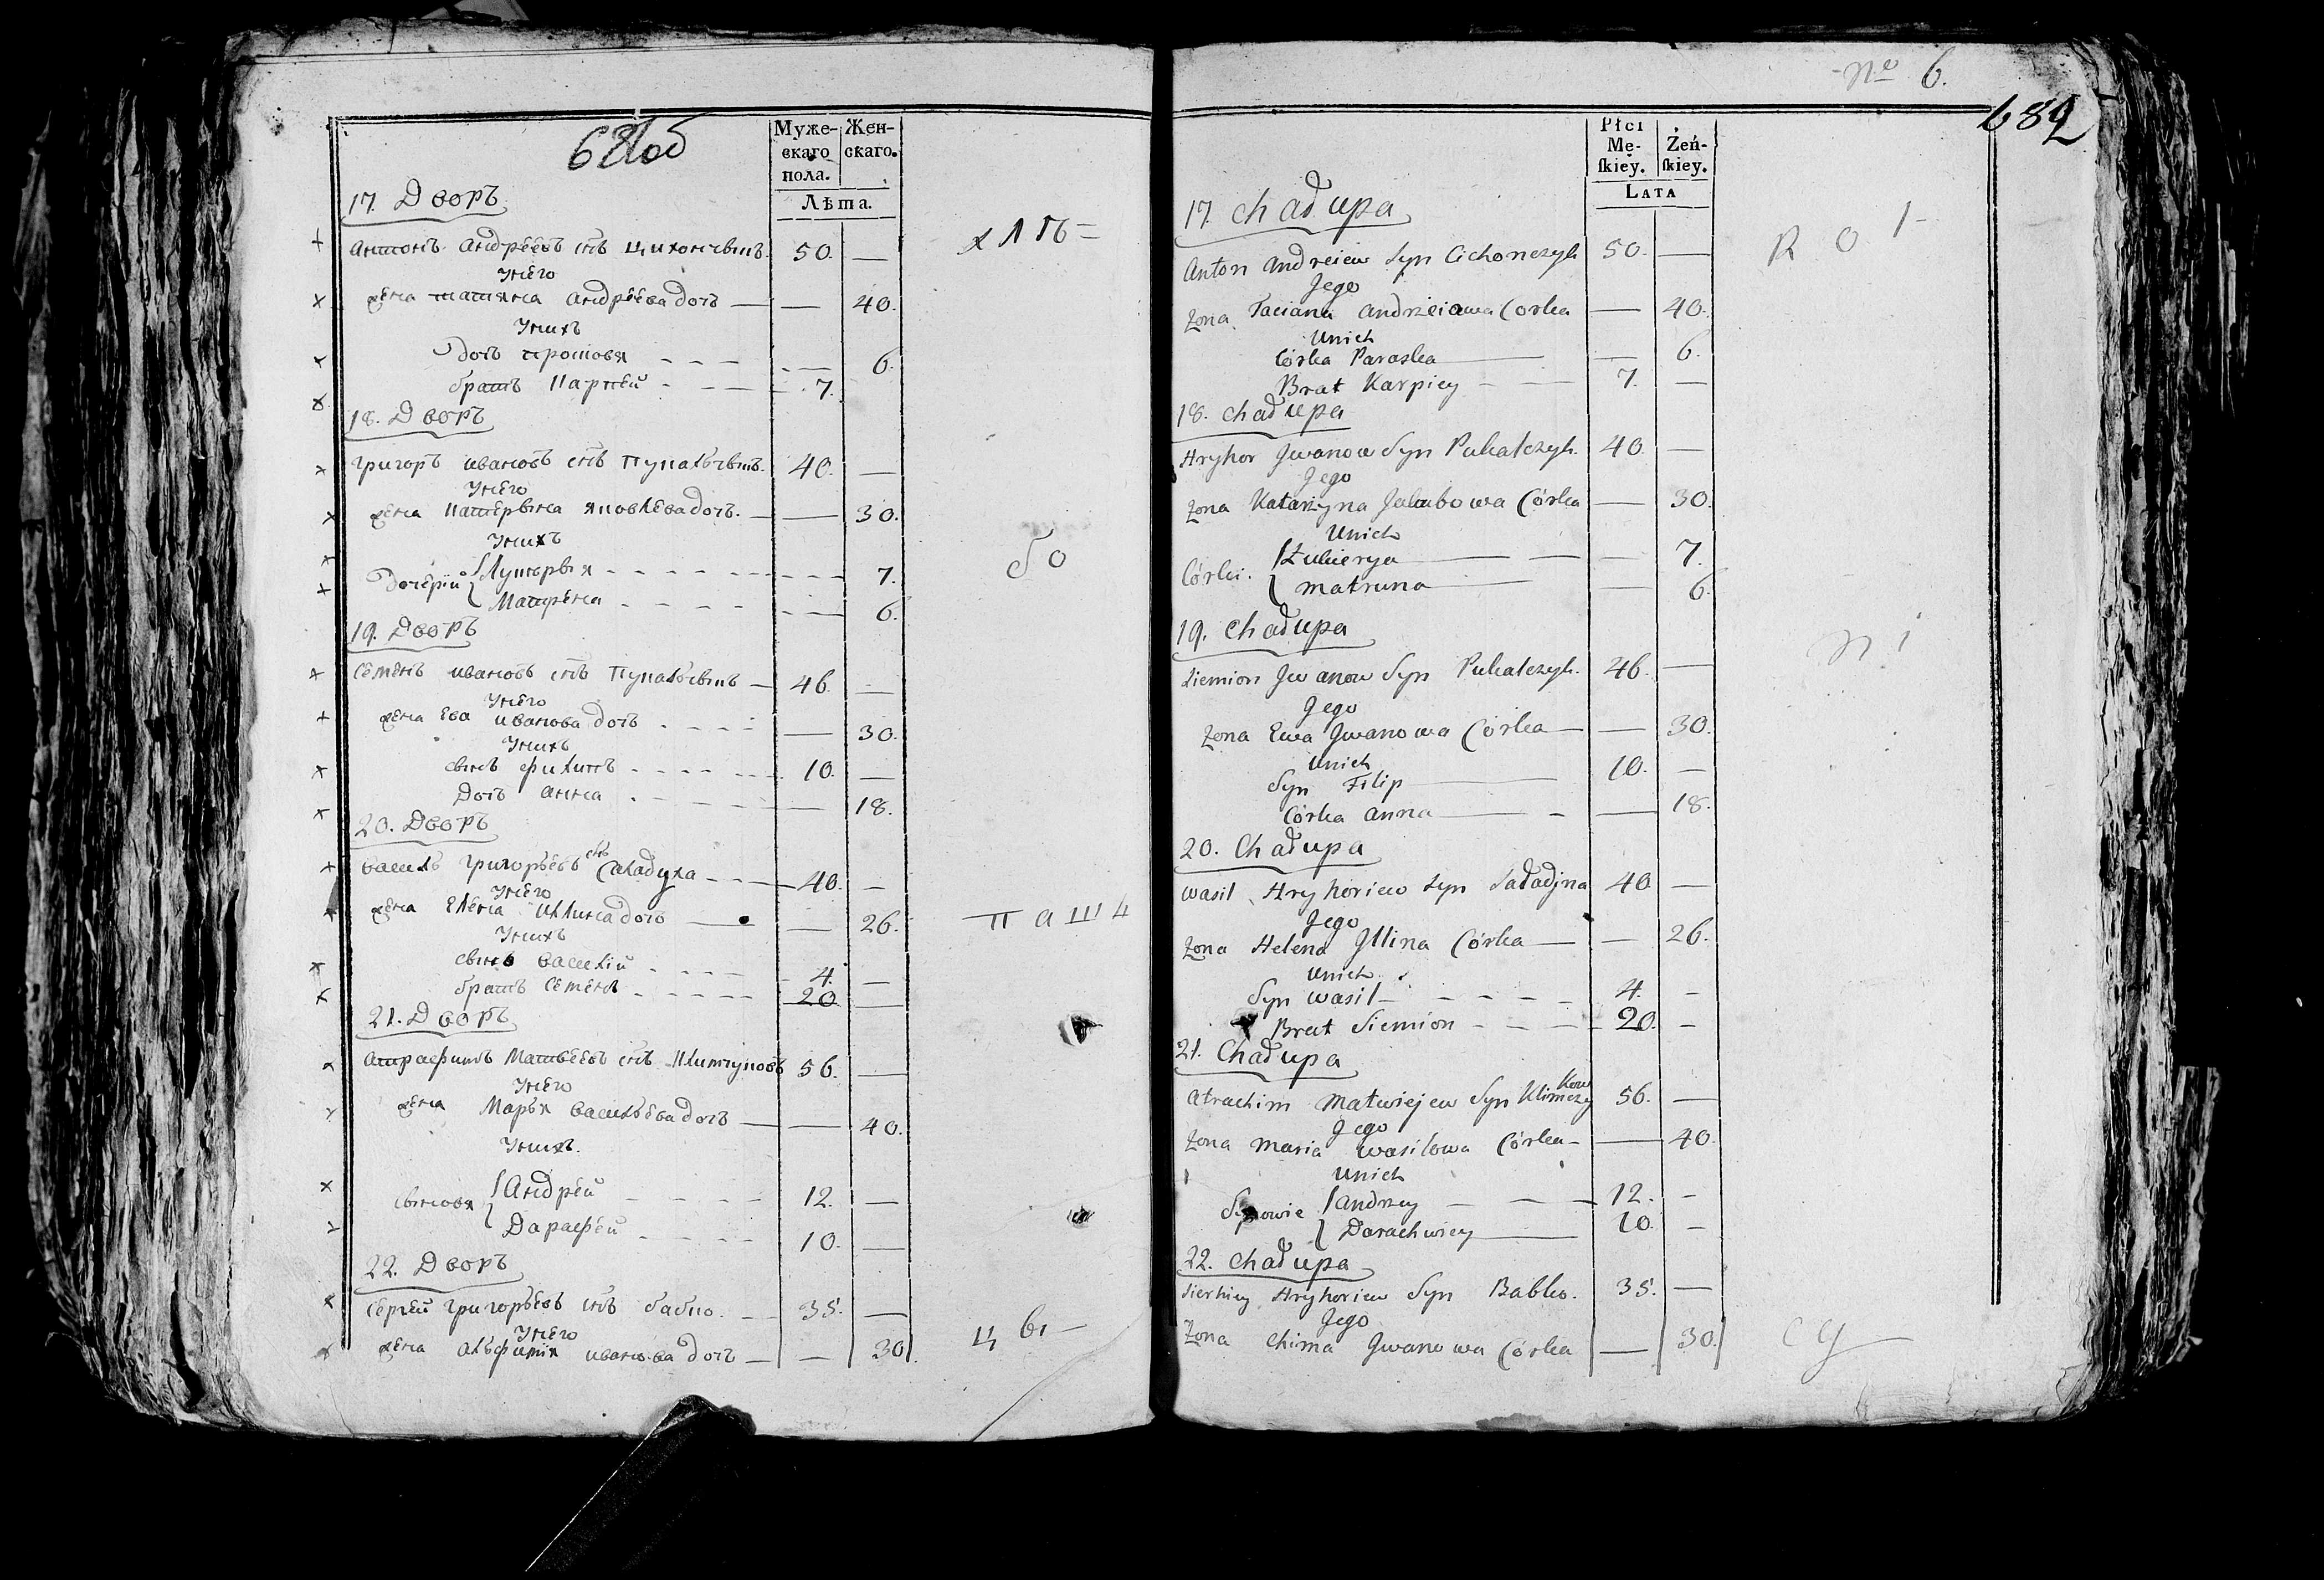 681об
Муже-
скаго
пола.
Жен-
скаго.
Лѣта.
17. Дворъ
Антонъ Андрѣевъ снъ Цихончыкъ. 50. —
Унего
жена татяна Андрѣева дочь — — 40.
Унихъ
дочь прошовя — 6.
братъ Карпей 7.
18. Дворъ
Григоръ ивановъ снъ Пукальчыкъ. 40. —
Унего
жена Катерына яковлева дочь. — 30.
Унихъ
Дочерїи Лукерыя 7.
Матрена 6.
19. Дворъ
Семенъ ивановъ снъ Пукальчыкъ 46. —
Унего
жена Ева иванова дочь — 30.
Унихъ
сынъ филипъ 10. —
Дочь анна — 18.
20. Дворъ
Василь григорьевъ снъ Саладуха 40. —
Унего
жена Елена Илина дочь — 26.
Унихъ
сынъ василій 4. —
братъ Семенъ 20 —
21. Дворъ
Матвеевъ снъ Климчуковъ 56. —
Унего
жена Марья васильева дочь — 40.
Унихъ.
сыновя Андрей 12. —
Дарафей 10. —
22. Дворъ
Сергей григорьевъ снъ бабко. 35. —
Унего
жена иванова дочь — 30.
х л ѣ =
б о
п а ш
ц ы —
№ 6.
682
Płci
Mę-
ſkiey.
Żeń-
ſkiey.
LATA
17. Chałupa
Anton Andreiew Syn Cichonczyk 50. —
Jego
Zona Taciana Andrzeiowa Corka — 40.
Unich
Córka Paraska — 6.
Brat Karpiey 7. —
18. Chałupa
Hryhor Jwanow Syn Pukalczyk. 40 —
Jego
Zona Katarzyna Jakubowa Córka — 30.
Unich
Córki. Łukierya — 7.
Matruna — 6.
19. Chałupa
Siemion Jwanow Syn Pukalczyk. 46. —
Jego
Zona Ewa Jwanowa Córka — 30.
Unich
Syn Filip 10. —
Córka Anna — 18.
20. Chałupa
Wasil Hryhoriew Syn 40 —
Jego
Zona Helena Jllina Córka — 26.
Unich
Syn Wasil 4. —
Brat Siemion 20. —
21. Chałupa
Atrachim Matwiejew Syn Klimczukow 56. —
Jego
Zona Maria Wasilowa Córka — 40.
Unich
Synowie Andrzey 12. —
Darachwiey 10. —
22. Chałupa
Sierhiey Hryhoriew Syn Babko. 35. —
Jego
Zona Chima Jwanowa Córka — 30.
R o l —
n i
c y —